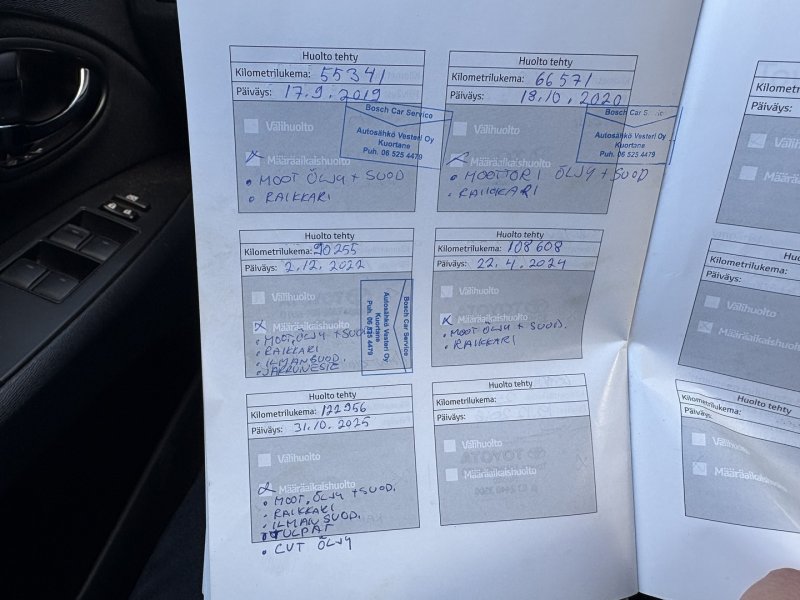 Huolto tehty
Kilometrilukema: 55341
Päiväys: 17.9.2019
Välihuolto
Määräaikaishuolto
• MOOT ÖLJY + SUOD
• RAIKKARI
Bosch Car Service
Autosähkö Vesteri Oy
Kuortane
Puh. 06 525 4479
Huolto tehty
Kilometrilukema: 66571
Päiväys: 18.10.2020
Välihuolto
Määräaikaishuolto
• MOOTTORI ÖLJY + SUOD
• RAIKKARI
Bosch Car
Autosähkö Vesteri Oy
Kuortane
Puh. 06 525 4479
Huolto tehty
Kilometrilukema: 90255
Päiväys: 2.12.2022
Välihuolto
Määräaikaishuolto
• MOOT.ÖLJY + SUOD
• RAIKKARI
• ILMANSUOD.
• JARRUNESTE
Bosch Car Service
Autosähkö Vesteri Oy
Kuortane
Puh. 06 525 4479
Huolto tehty
Kilometrilukema: 108608
Päiväys: 22.4.2024
Välihuolto
Määräaikaishuolto
• MOOT ÖLJY + SUOD.
• RAIKKARI
Huolto tehty
Kilometrilukema: 122956
Päiväys: 31.10.2025
Välihuolto
Määräaikaishuolto
• MOOT.ÖLJY + SUOD.
• RAIKKARI
• ILMANSUOD.
• TULPAT
• CVT ÖLJY
Huolto tehty
Kilometrilukema:
Päiväys:
Välihuolto
Määräaikaishuolto
Kilometrilukema:
Päiväys:
Huolto tehty
Kilometrilukema:
Päiväys:
Välihuolto
Huolto tehty
Kilometrilukema:
Päiväys:
Välihuolto